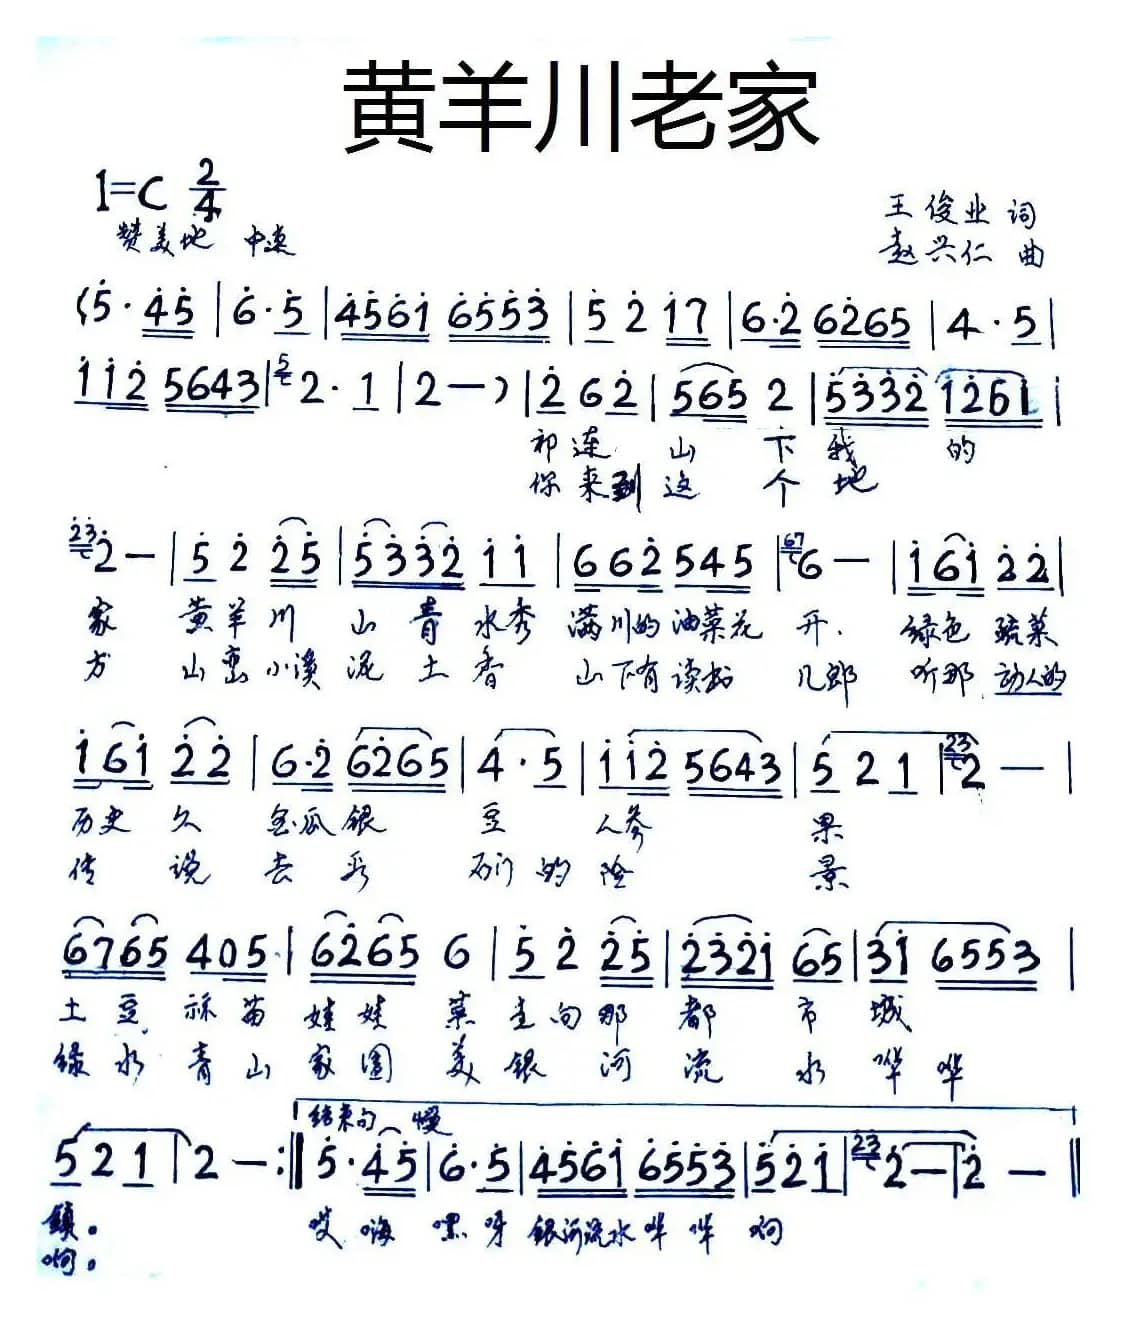 黄羊川老家
1=C 2/4
王俊业 词
赞美地 中速
赵兴仁 曲
(5·45|6·5|4561 6553|5 2 17|6·2 6265|4·5|
112 5643|5 2·1|2—)|2 6 2|565 2|5332 1261|
祁连山下我的
你来到这个地
23 2—|5 2 25|5332 11|662 545|67 6—|161 22|
家 黄羊川 山青水秀 满川的油菜花开, 绿色蔬菜
方 山峦小溪泥土香 山下有读书儿郎 听那动人的
161 22|6·2 6265|4·5|112 5643|5 2 1|23 2—|
历史久 金瓜银豆人参果
传说去看石门的险景
6765 405|6265 6|5 2 25|2321 65|31 6553|
土豆 苗娃娃菜走向那都市城
绿水青山家园美银河流水哗哗
5 2 1|2—:‖5·45|6·5|4561 6553|5 2 1|23 2—|2—‖
结束句 慢
镇。 哎嗨嘿呀银河流水哗哗啊
啊。